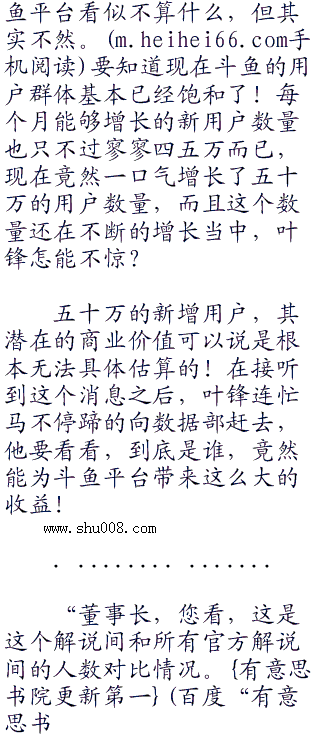 鱼平台看似不算什么，但其
实不然。(m.heihei66.com手
机阅读)要知道现在斗鱼的用
户群体基本已经饱和了！每
个月能够增长的新用户数量
也只不过寥寥四五万而已，
现在竟然一口气增长了五十
万的用户数量，而且这个数
量还在不断的增长当中，叶
锋怎能不惊？
五十万的新增用户，其
潜在的商业价值可以说是根
本无法具体估算的！在接听
到这个消息之后，叶锋连忙
马不停蹄的向数据部赶去，
他要看看，到底是谁，竟然
能为斗鱼平台带来这么大的
收益！
www.shu008.com
. ........ .......
“董事长，您看，这是
这个解说间和所有官方解说
间的人数对比情况。{有意思
书院更新第一}(百度“有意
思书